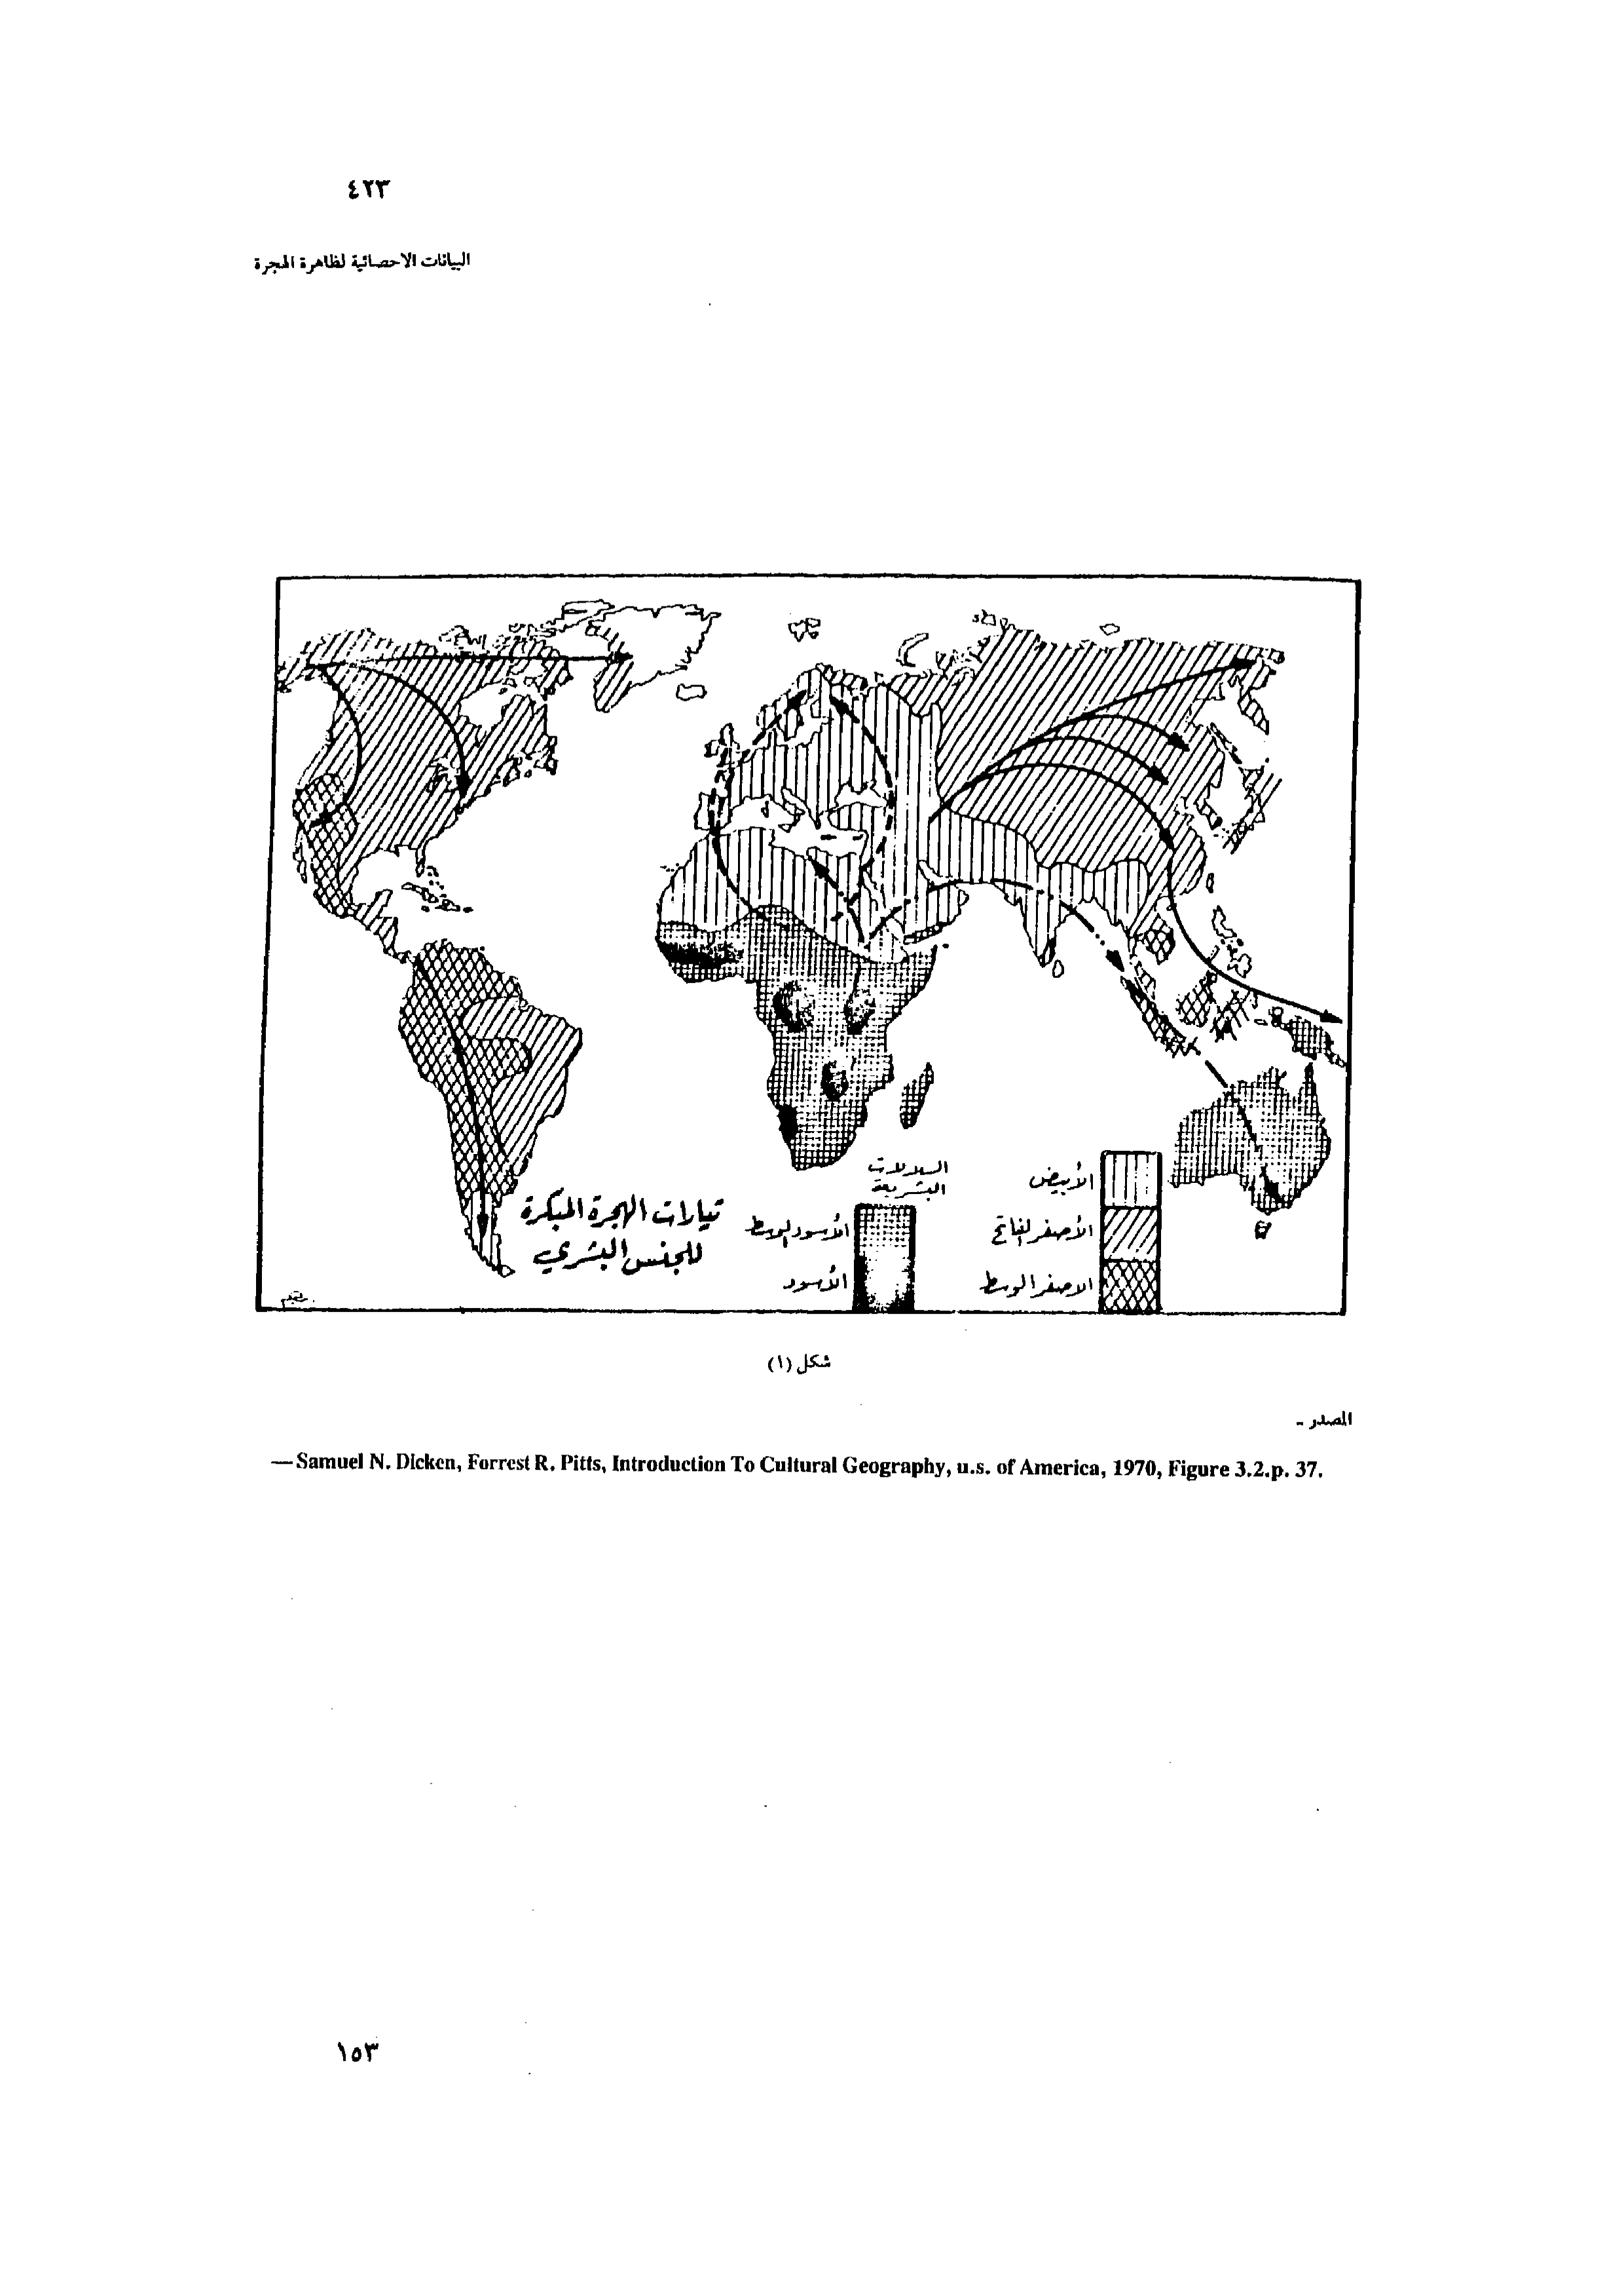 ٤٢٣
البيانات الاحصائية لظاهرة الهجرة
تيارات الهجرة المبكرة
للجنس البشري
السلالات
البشرية
الأبيض
الأصفر الفاتح
الاصفر الوسط
الأسود الوسط
الأسود
شكل (١)
المصدر -
— Samuel N. Dicken, Forrest R. Pitts, Introduction To Cultural Geography, u.s. of America, 1970, Figure 3.2.p. 37.
١٥٣